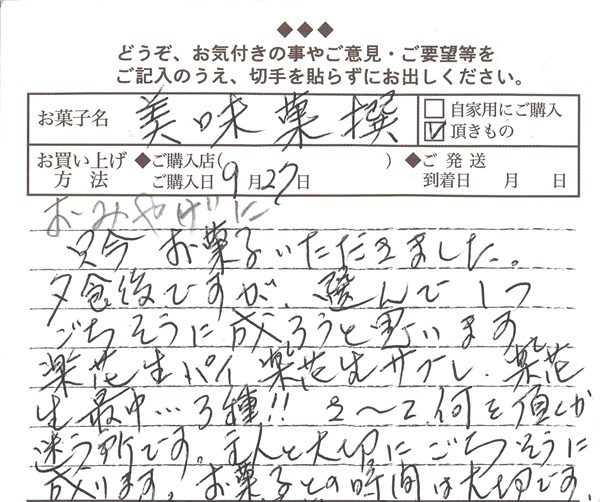 ◆◆◆
どうぞ、お気付きの事やご意見・ご要望等を
ご記入のうえ、切手を貼らずにお出しください。
お菓子名 美味菓撰 □自家用にご購入
☑頂きもの
お買い上げ方法 ◆ご購入店( ) ◆ご発送
ご購入日 9月27日 到着日 月 日
おみやげに
只今 お菓子いただきました。
夕食後ですが、選んで1つ
ごちそうに成ろうと思います
楽花生パイ 楽花生サブレ、楽花
生最中…3種!! さ〜て何を頂くか
迷う所です。主人と大切にごちそうに
成ります。お菓子との時間は大切です